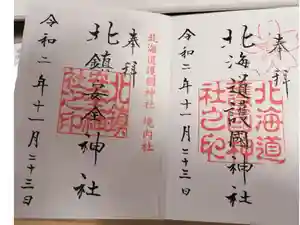 奉拝
北海道護國神社
北海道
護國神
社之印
令和二年十一月二十三日
北海道護國神社 境内社
奉拝
北鎮安全神社
社之印
令和二年十一月二十三日